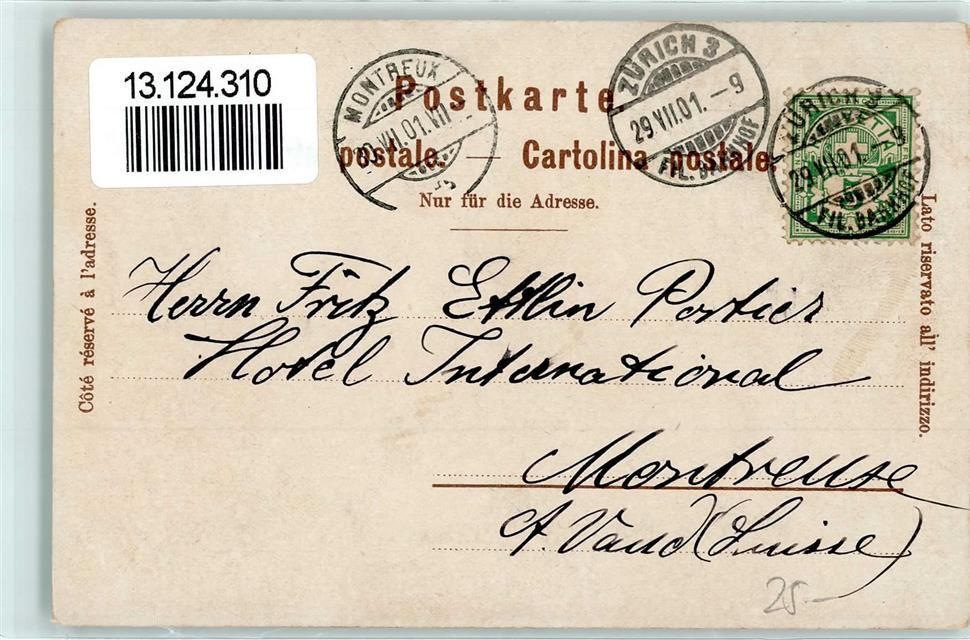 13.124.310
MONTREUX
ZÜRICH 3
29 VII.01. – 9
FIL. BAHNHOF
ZÜRICH 3
29 VII.01
FIL. BAHNHOF
Postkarte.
postale. — Cartolina postale.
Nur für die Adresse.
Côté réservé à l'adresse.
Lato riservato all' indirizzo.
Herrn Fritz Ettlin Portier
Hotel International
Montreuse
Vaud (Suisse)
25.–